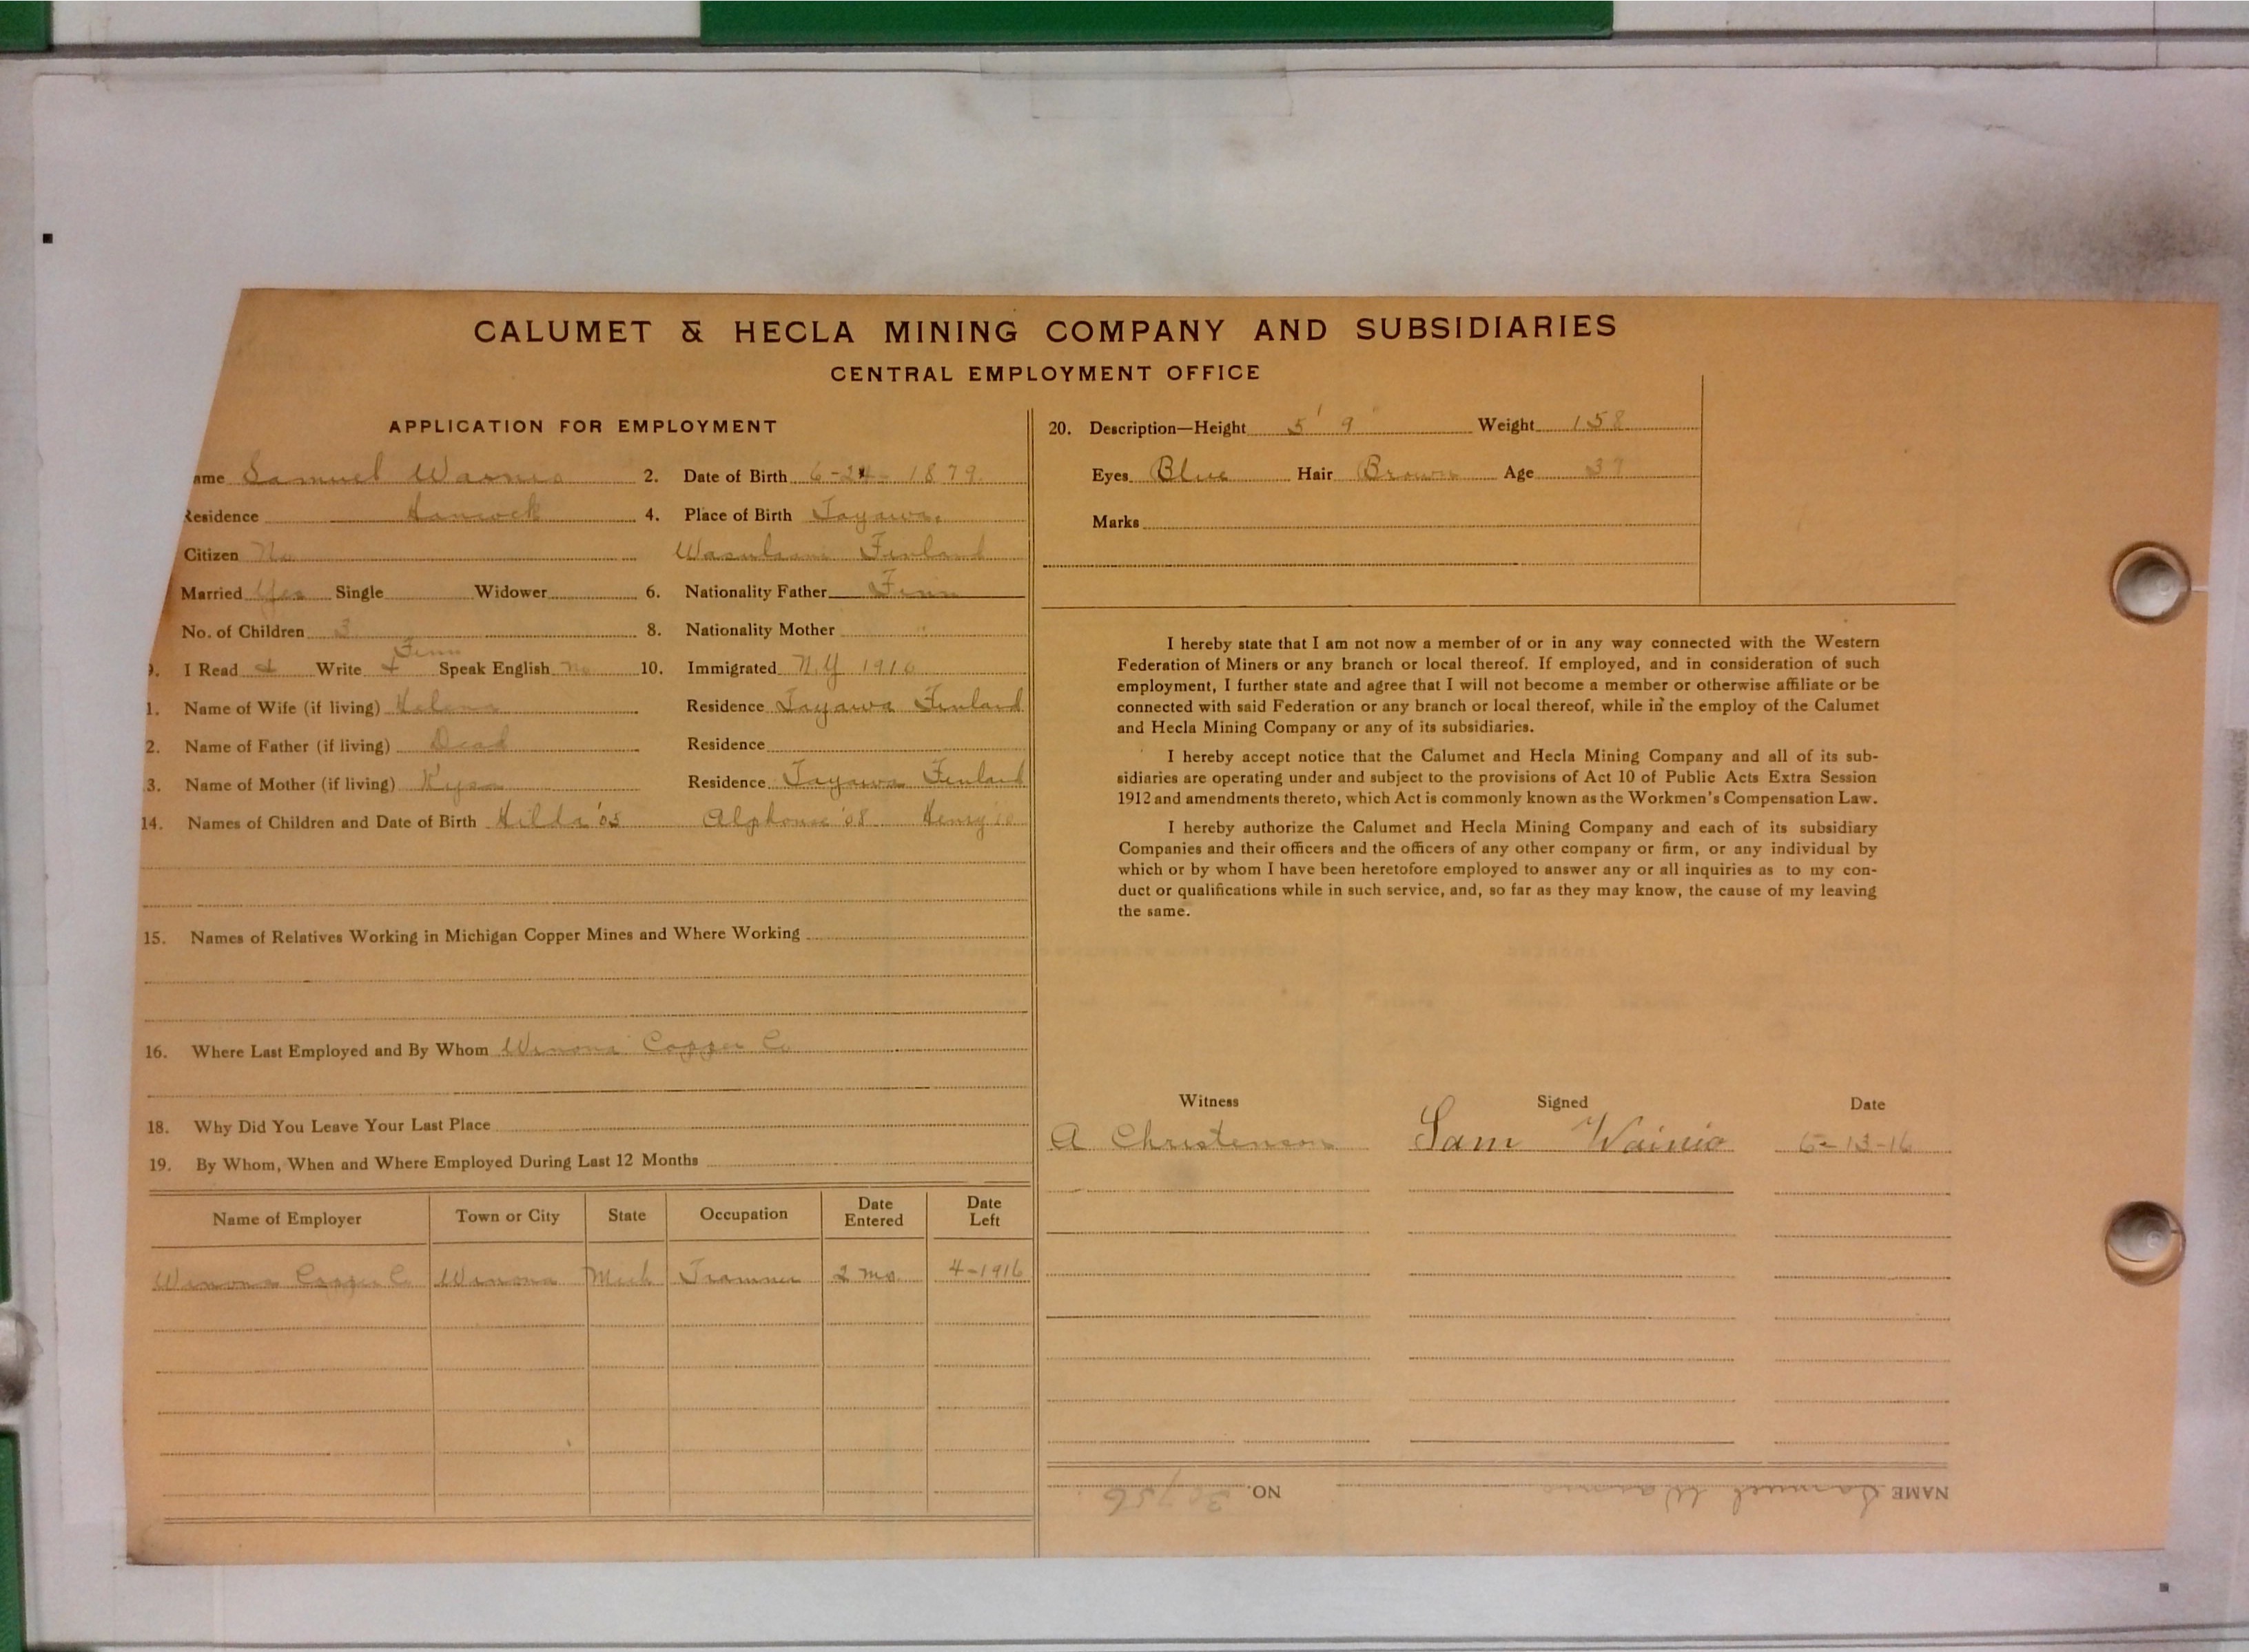 CALUMET & HECLA MINING COMPANY AND SUBSIDIARIES
CENTRAL EMPLOYMENT OFFICE
APPLICATION FOR EMPLOYMENT
ame Samuel 2. Date of Birth 6-24-1879
Residence Hancock 4. Place of Birth
Citizen No Finland
Married Yes Single Widower 6. Nationality Father Finn
No. of Children 3 8. Nationality Mother "
Finn
9. I Read + Write + Speak English No 10. Immigrated N.Y 1910
1. Name of Wife (if living) Residence Finland
2. Name of Father (if living) Dead Residence
3. Name of Mother (if living) Residence Finland
14. Names of Children and Date of Birth Hilda '05 '08 Henry '10
15. Names of Relatives Working in Michigan Copper Mines and Where Working
16. Where Last Employed and By Whom Winona Copper Co
18. Why Did You Leave Your Last Place
19. By Whom, When and Where Employed During Last 12 Months
Name of Employer Town or City State Occupation Date Entered Date Left
Winona Copper Co Winona Mich Trammer 2 mo. 4-1916
20. Description—Height 5' 9" Weight 158
Eyes Blue Hair Brown Age 37
Marks
I hereby state that I am not now a member of or in any way connected with the Western
Federation of Miners or any branch or local thereof. If employed, and in consideration of such
employment, I further state and agree that I will not become a member or otherwise affiliate or be
connected with said Federation or any branch or local thereof, while in the employ of the Calumet
and Hecla Mining Company or any of its subsidiaries.
I hereby accept notice that the Calumet and Hecla Mining Company and all of its sub-
sidiaries are operating under and subject to the provisions of Act 10 of Public Acts Extra Session
1912 and amendments thereto, which Act is commonly known as the Workmen's Compensation Law.
I hereby authorize the Calumet and Hecla Mining Company and each of its subsidiary
Companies and their officers and the officers of any other company or firm, or any individual by
which or by whom I have been heretofore employed to answer any or all inquiries as to my con-
duct or qualifications while in such service, and, so far as they may know, the cause of my leaving
the same.
Witness Signed Date
A Christenson Sam Wainio
NAME Samuel NO.